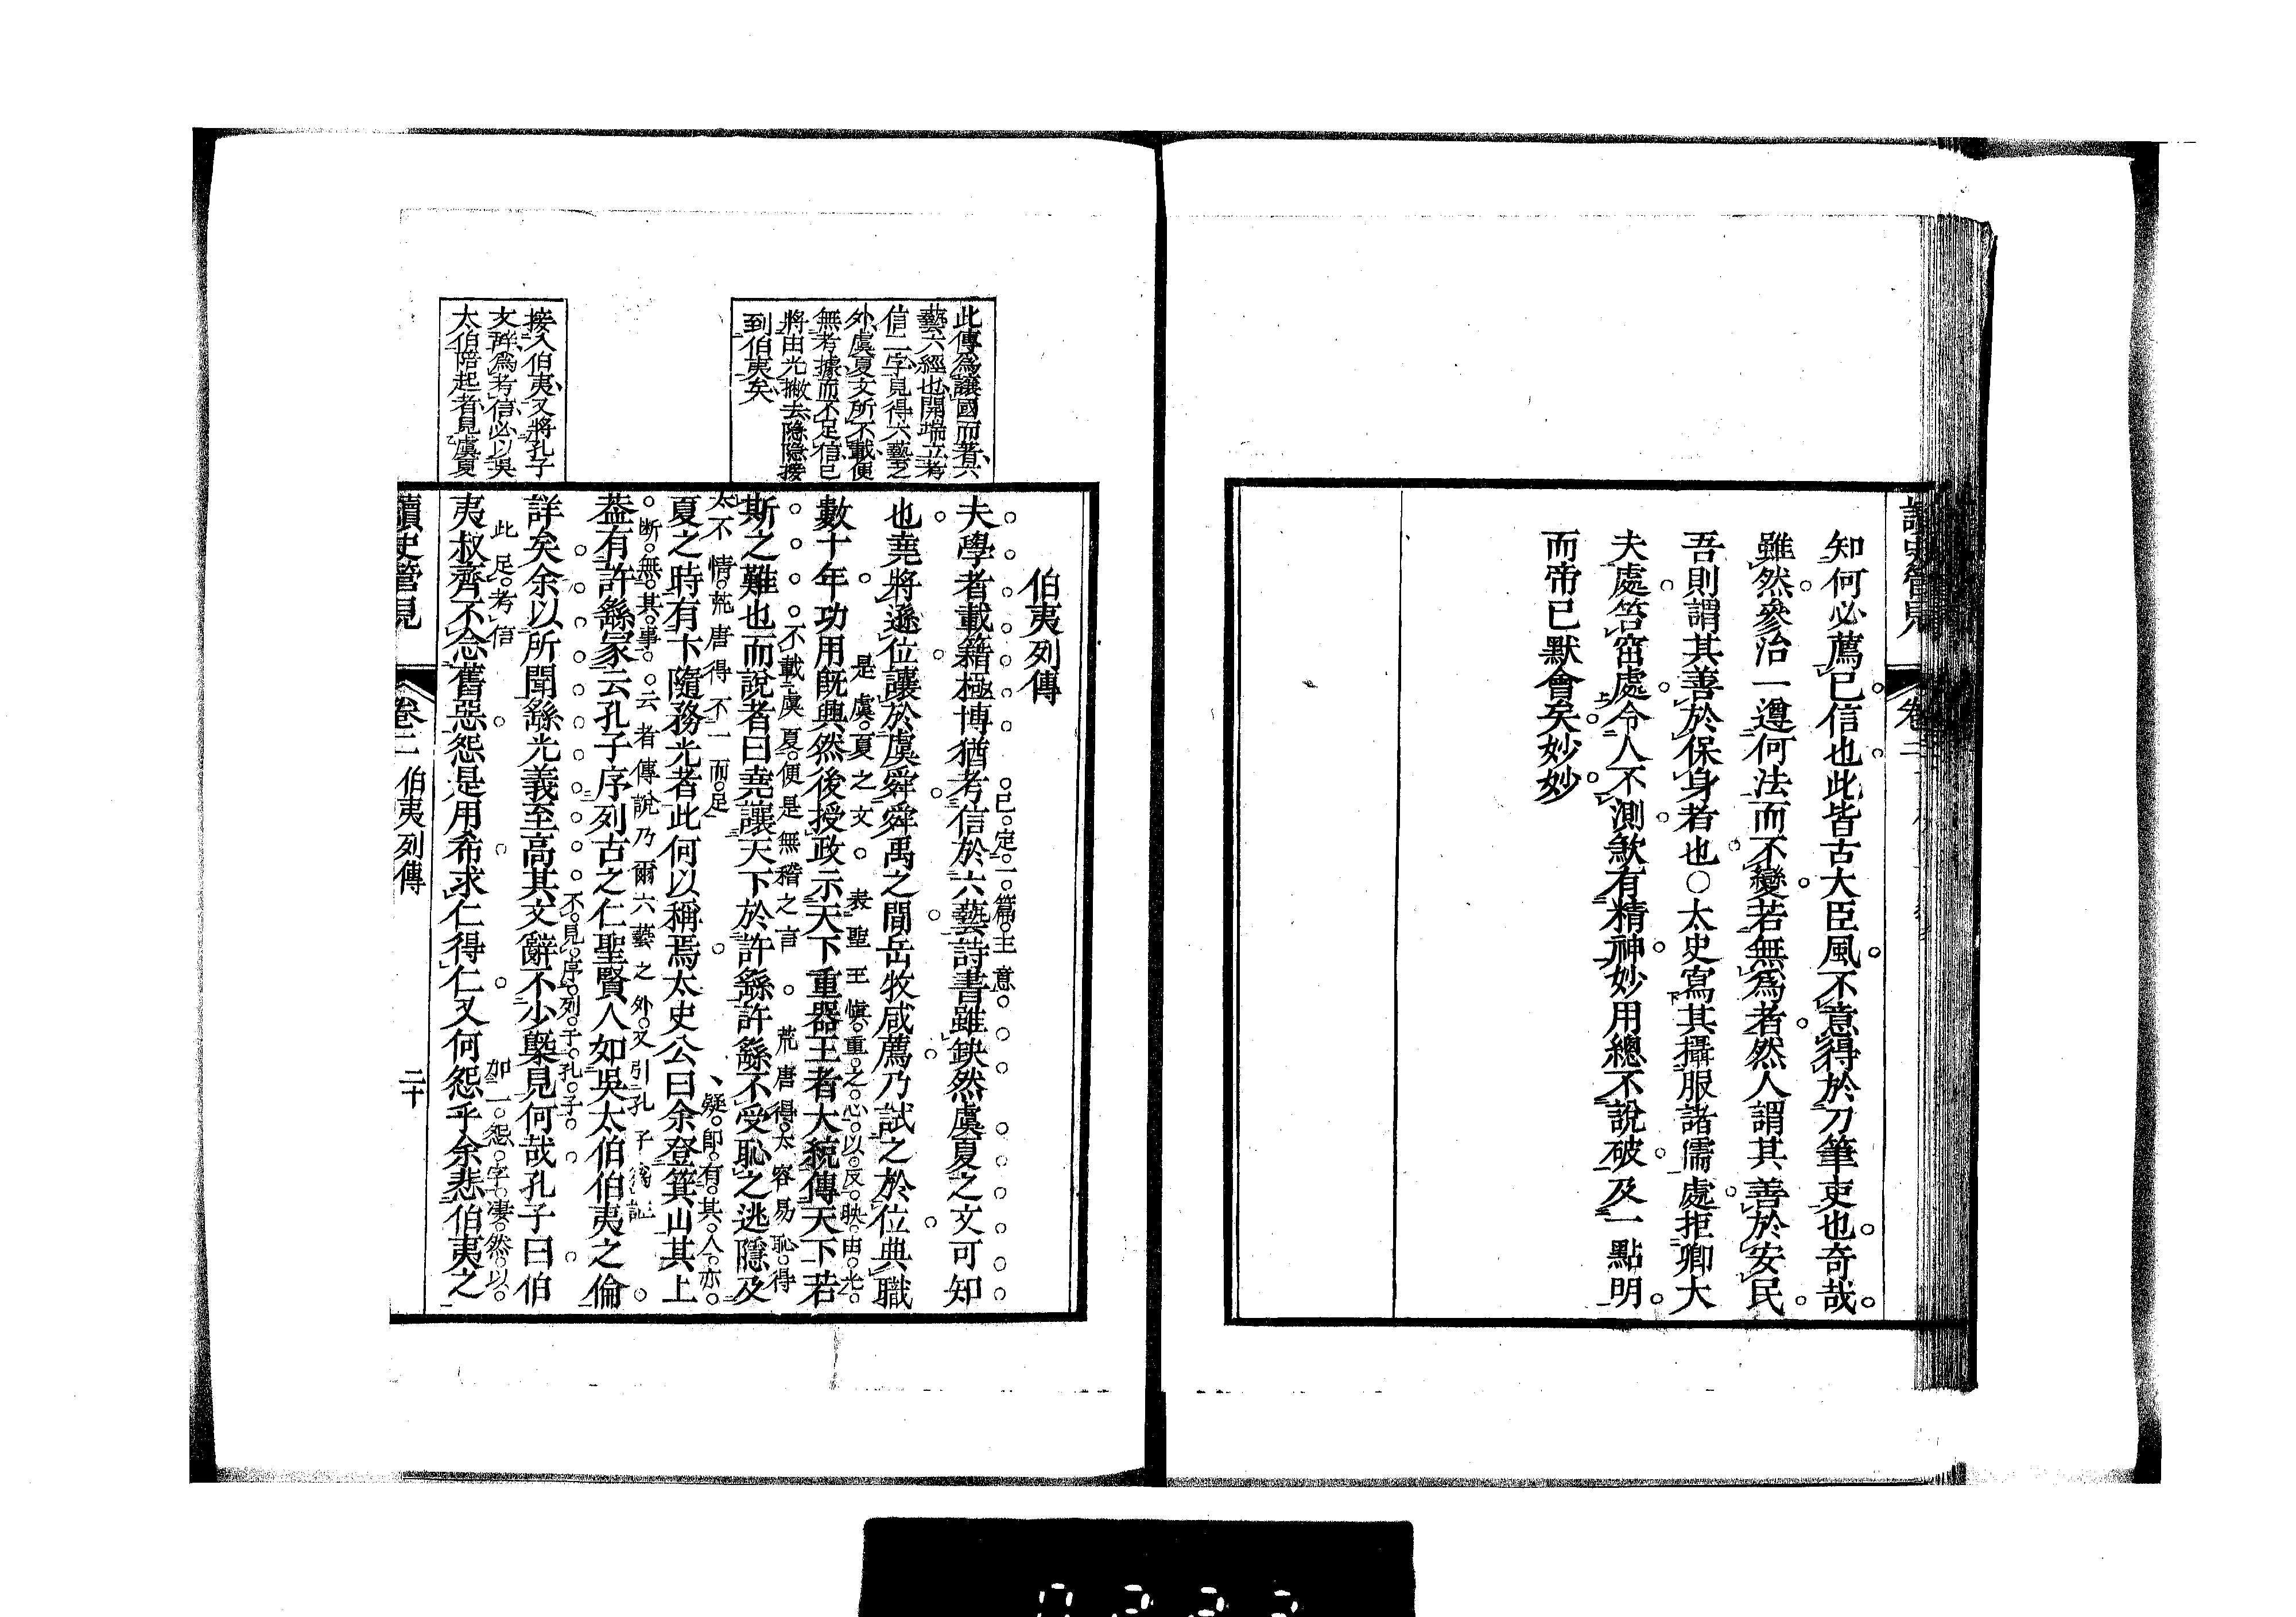 知何必薦已信也此皆古大臣風不意得於刀筆吏也奇哉
雖然參治一遵何法而不變若無為者然人謂其善於安民
吾則謂其善於保身者也○太史寫其攝服諸儒處拒卿大
夫處笞窋處令人不測煞有精神妙用總不說破及一點明
而帝已默會矣妙妙
此傳為讓國而著六
藝六經也開端立考
信二字見得六藝之
外虞夏文所不載便
無考據而不足信已
將由光撇去隱隱接
到伯夷矣
接入伯夷又將孔子
文詳為考信必以吳
太伯陪起者見虞夏
伯夷列傳
夫學者載籍極博猶考信於六藝詩書雖缺然虞夏之文可知
已定一篇主意
也堯將遜位讓於虞舜舜禹之間岳牧咸薦乃試之於位典職
是虞夏之文 表聖王慎重之心以反映由光
數十年功用旣興然後授政示天下重器王者大統傳天下若
不載虞夏便是無稽之言 荒唐得太容易恥得
斯之難也而說者曰堯讓天下於許繇許繇不受恥之逃隱及
太不情荒唐得不一而足 疑即有其人亦
夏之時有卞隨務光者此何以稱焉太史公曰余登箕山其上
斷無其事云者傳說乃爾六藝之外又引孔子為証
葢有許繇冢云孔子序列古之仁聖賢人如吳太伯伯夷之倫
不見序列于孔子
詳矣余以所聞繇光義至高其文辭不少槩見何哉孔子曰伯
此足考信 加一怨字凄然以
夷叔齊不念舊惡怨是用希求仁得仁又何怨乎余悲伯夷之
讀史管見 卷二 伯夷列傳 二十